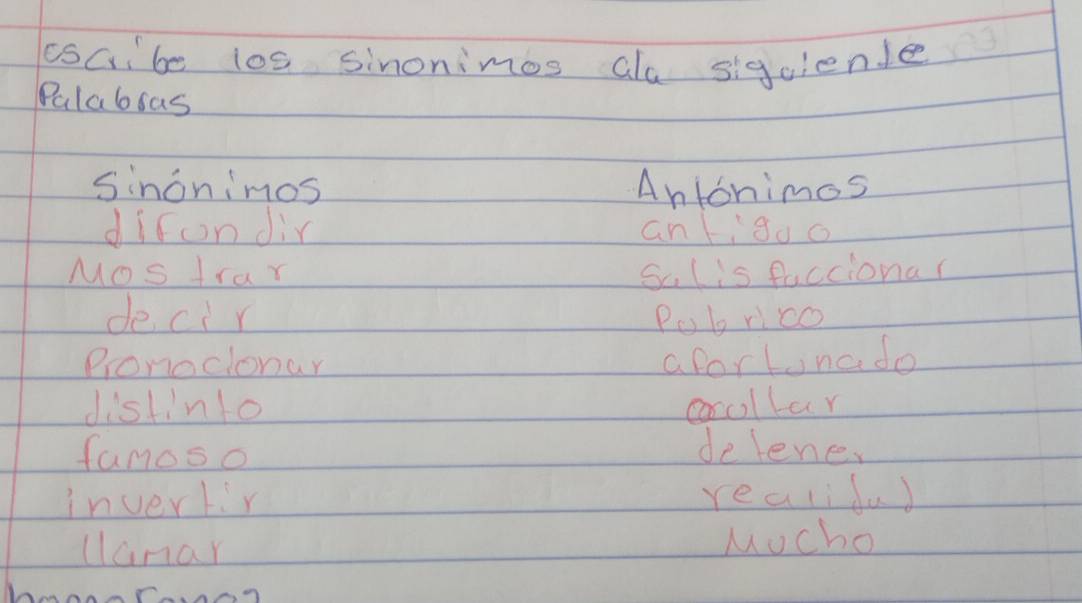 escribe los sinonimos ala siguiente
Palabras
Sinónimos Antónimos
difundir antiguo
Mostrar Satisfaccionar
decir Pubrico
Promocionar afortunado
distinto ocultar
famoso detener
invertir realidad
llamar Mucho